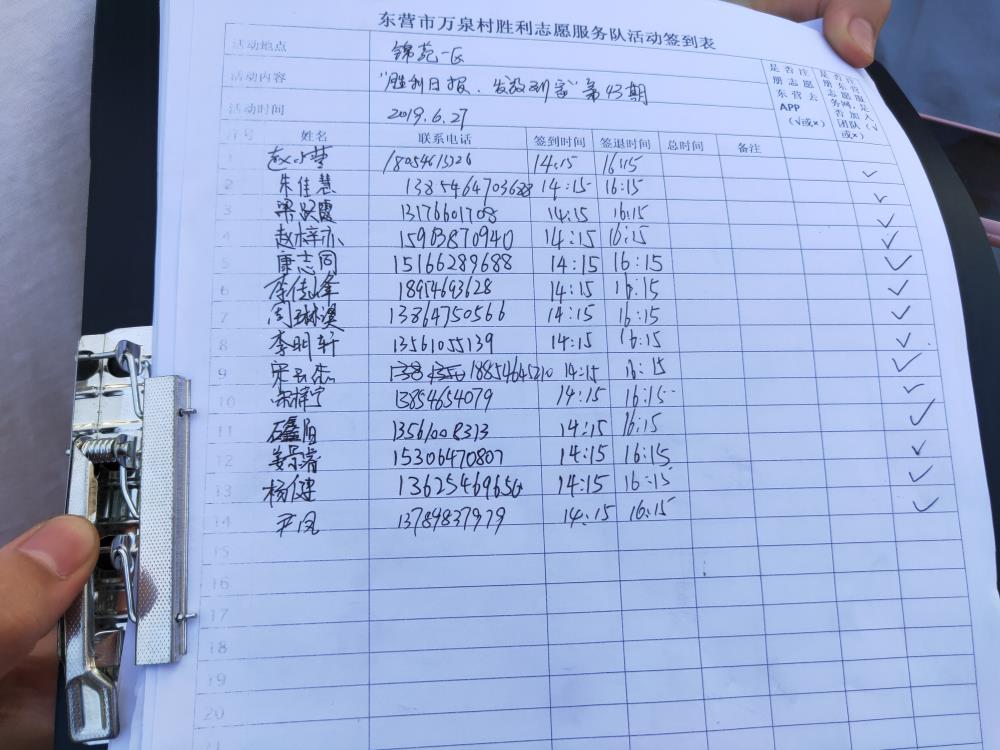 东营市万泉村胜利志愿服务队活动签到表
活动地点 锦苑一区
活动内容 "胜利日报、 第43期
活动时间 2019.6.27
是否注册志愿东营去APP（√或×）
是否注册东营志愿服务网，是否加入团队（√或×）
序号 姓名 联系电话 签到时间 签退时间 总时间 备注
1 赵 18054615326 14:15 16:15 √
2 朱佳慧 1385464703688 14:15 16:15 √
3 梁 霞 13176601708 14:15 16:15 √
4 赵梓亦 15963870940 14:15 16:15 √
5 康志同 15166289688 14:15 16:15 √
6 李佳泽 18954693628 14:15 16:15 √
7 周琳溪 13864750566 14:15 16:15 √
8 李明轩 13561055139 14:15 16:15 √
9 宋 杰 18854645210 14:15 16:15 √
10 梓宁 13854654079 14:15 16:15 √
11 石鑫阳 13561008313 14:15 16:15 √
12 姜 15306470807 14:15 16:15 √
13 杨健 13625469656 14:15 16:15 √
14 尹凤 13789837979 14:15 16:15 √
15
16
17
18
19
20
21